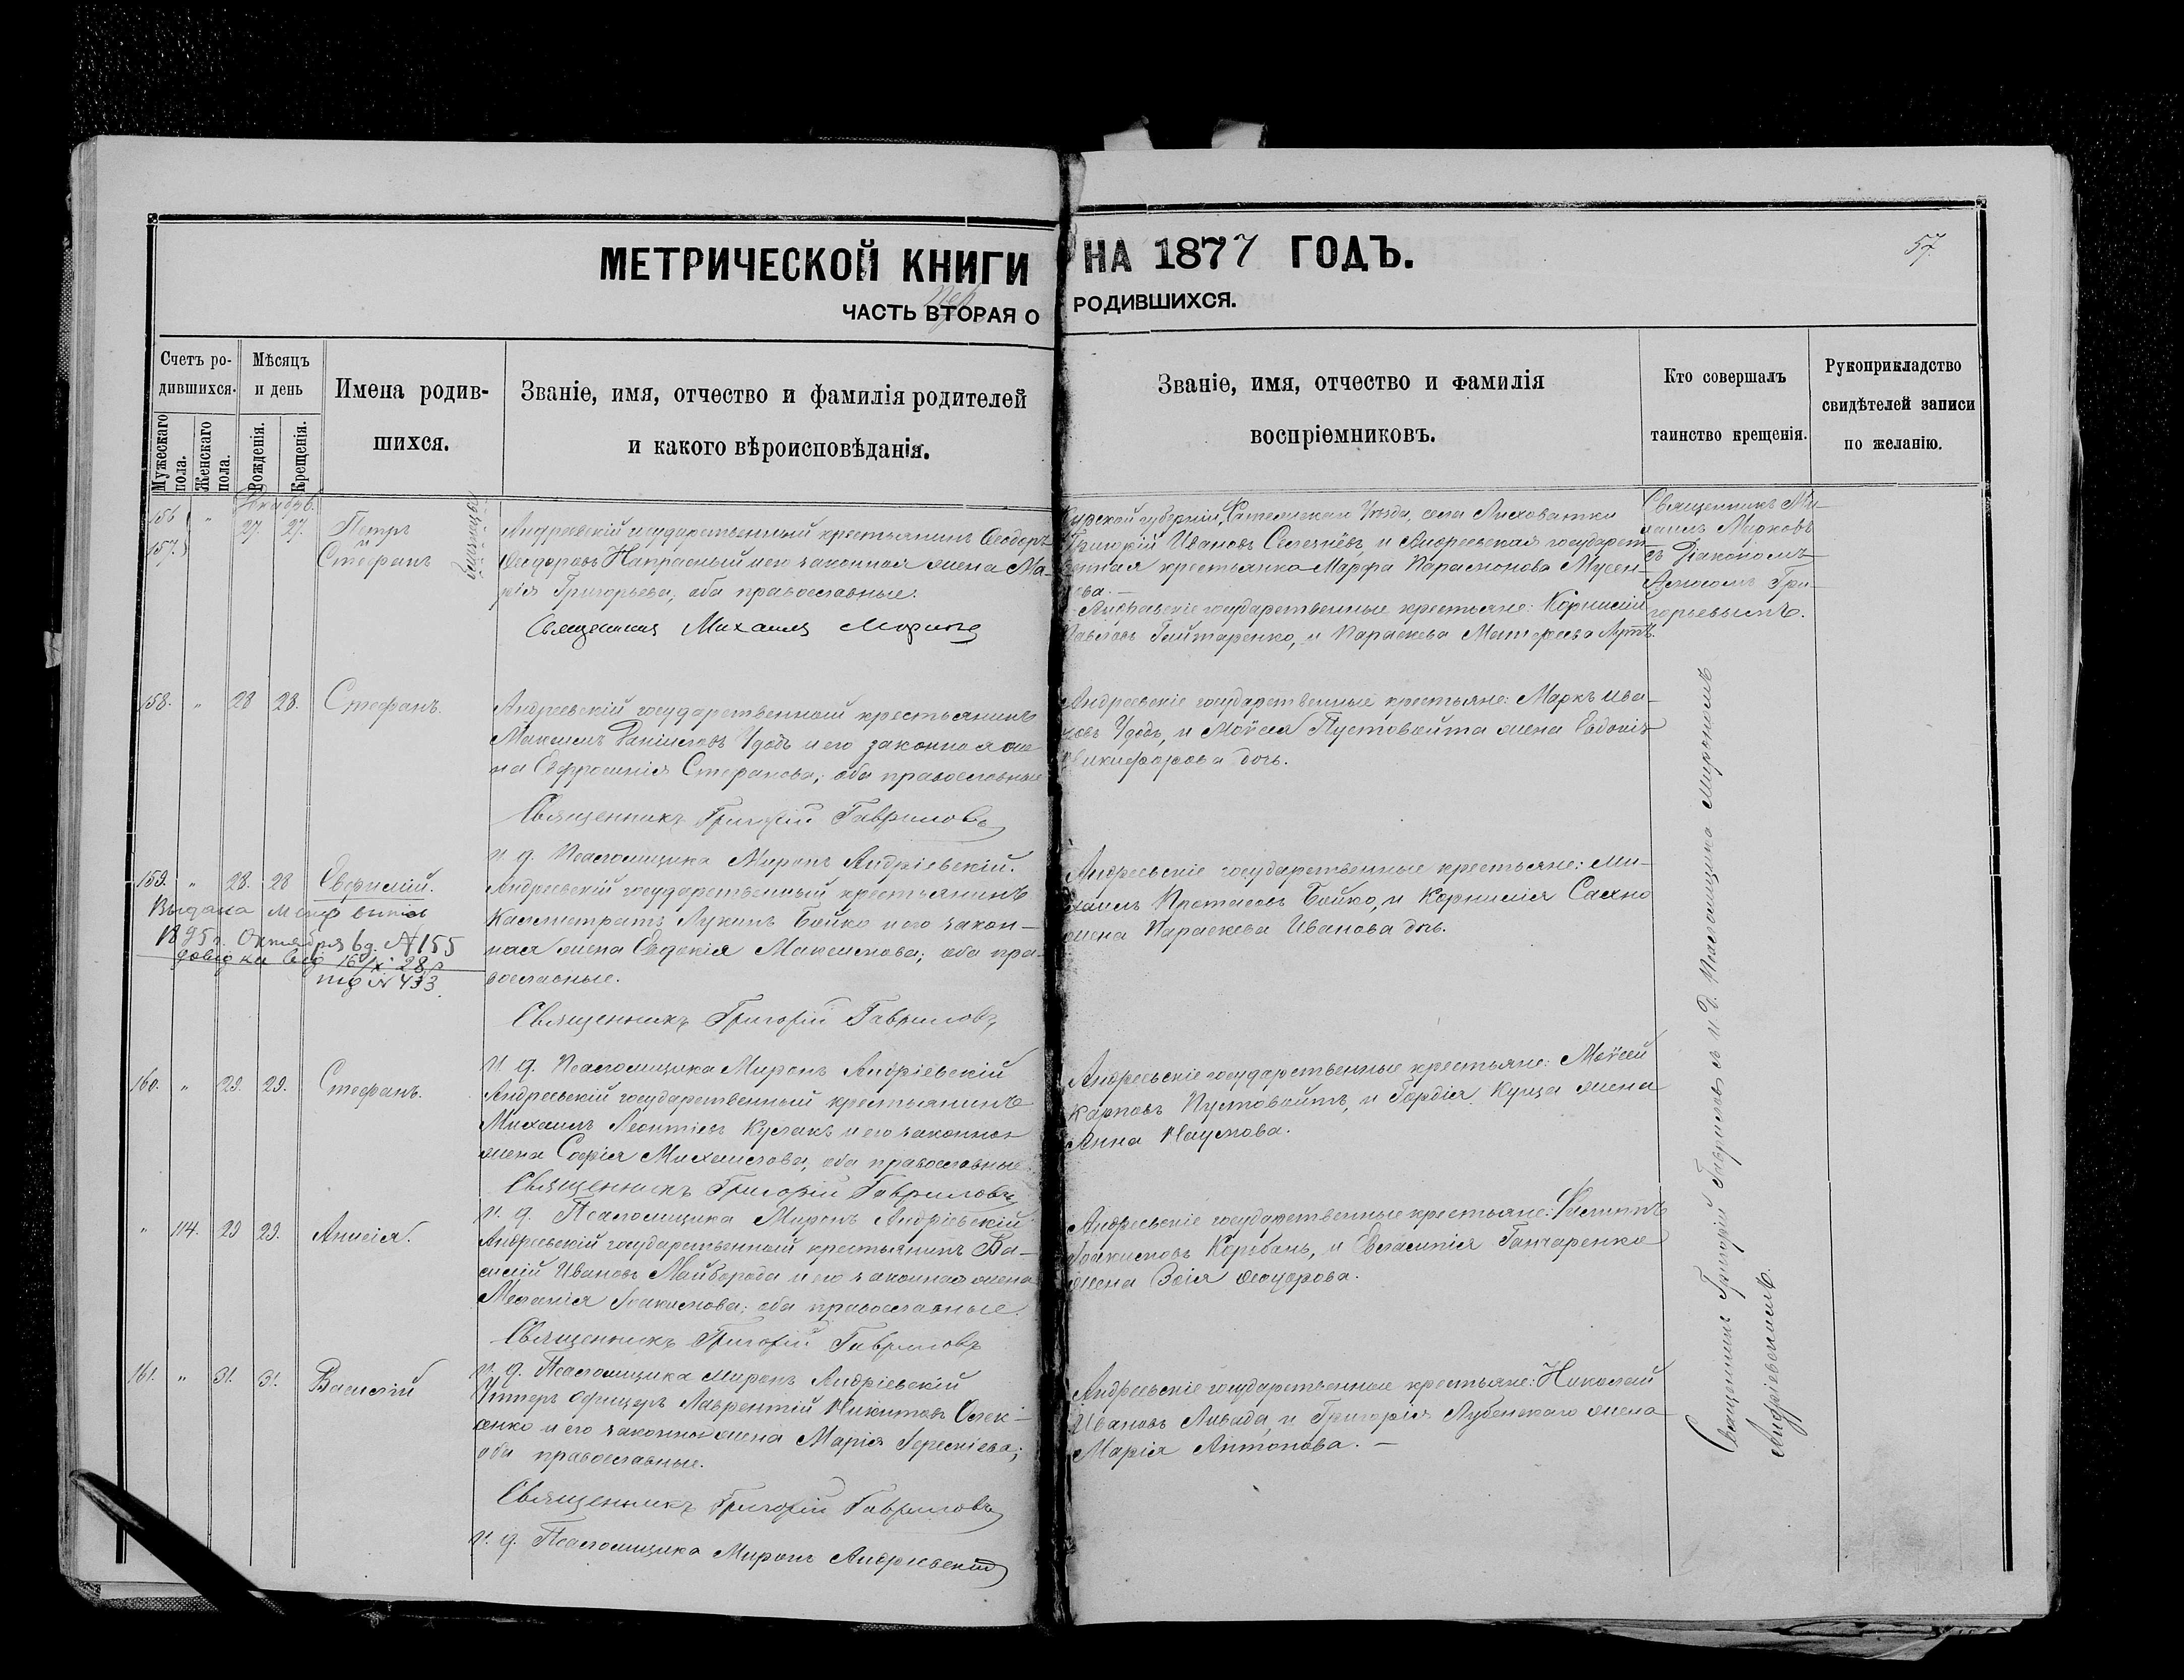 МЕТРИЧЕСКОЙ КНИГИ НА 1877 ГОДЪ.
57.
ЧАСТЬ ВТОРАЯ О РОДИВШИХСЯ.
Счетъ ро-
дившихся.
Мужескаго пола.
Женскаго пола.
Мѣсяцъ
и день
Рожденія.
Крещенія.
Имена родив-
шихся.
Званіе, имя, отчество и фамилія родителей
и какого вѣроисповѣданія.
Званіе, имя, отчество и фамилія
воспріемниковъ.
Кто совершалъ
таинство крещенія.
Рукоприкладство
свидѣтелей записи
по желанію.
156 " 27. 27. Петръ
157. и Стефанъ
близнецы
Андреевскій государственный крестьянинъ Ѳеодоръ
Ѳеодоровъ Напрасный и его законная жена Ма-
рія Григорьева; оба православные.
Священникъ Михаилъ
Курской губерніи, уезда, села Лиховатки
Григорій Ивановъ Селезнёвъ, и Андреевская государст-
венная крестьянка Марфа Парамонова
Андреевскіе государственные крестьяне: Корнилій
Павловъ Гайтаренко, и Параскева
Священникъ Ми-
хаилъ
съ Діакономъ
Гри-
горьевымъ.
158. " 28 28. Стефанъ.
Андреевскій государственный крестьянинъ
Максимъ Даніиловъ Удодъ и его законная же-
на Евфросинія Стефанова; оба православные
Священникъ Григорій Гавриловъ
и. д. Псаломщика Миронъ Андріевскій.
Андреевскіе государственные крестьяне: Маркъ Ива-
новъ Удодъ, и Моѵсея Пустовойта жена Евдокія
Никифорова дочь.
159. " 28. 28 Евфимій.
Выдана метр. выпись
1895 г. Октября 6 д. № 155
довідка від 16/X 28 р
під № 433.
Андреевскій государственный крестьянинъ
Каллистратъ Лукинъ Бойко и его закон-
ная жена Евдокія Максимова; оба пра-
вославные.
Священникъ Григорій Гавриловъ
и. д. Псаломщика Миронъ Андріевскій
Андреевскіе государственные крестьяне: Ми-
хаилъ Протасовъ Бойко, и Корнилія Сахно
жена Параскева Иванова дочь.
160. " 29. 29. Стефанъ.
Андреевскій государственный крестьянинъ
Михаилъ Леонтіевъ Куслакъ и его законная
жена Софія Михаилова; оба православные.
Священникъ Григорій Гавриловъ
и. д. Псаломщика Миронъ Андріевскій
Андреевскіе государственные крестьяне: Моѵсей
Карповъ Пустовойтъ, и Гордія Куща жена
Анна Наумова.
" 114. 29 29. Анисія.
Андреевскій государственный крестьянинъ Ва-
силій Ивановъ Майборода и его законная жена
Меланія Іоакимова; оба православные.
Священникъ Григорій Гавриловъ
и. д. Псаломщика Миронъ Андріевскій
Андреевскіе государственные крестьяне: Филиппъ
Іоакимовъ Корбань, и Евлампія Ганчаренко
жена Зоія Ѳеодорова.
161. " 31. 31. Василій
Унтеръ офицеръ Лаврентій Никитовъ Олек-
сенко и его законная жена Марія Іереміева;
оба православные.
Священникъ Григорій Гавриловъ
и. д. Псаломщика Миронъ Андріевскій
Андреевскіе государственные крестьяне: Николай
Ивановъ Ливада, и Григорія Лубенскаго жена
Марія Антонова. —
Священникъ Григорій Гавриловъ съ и. д. Псаломщика Мирономъ
Андріевскимъ.